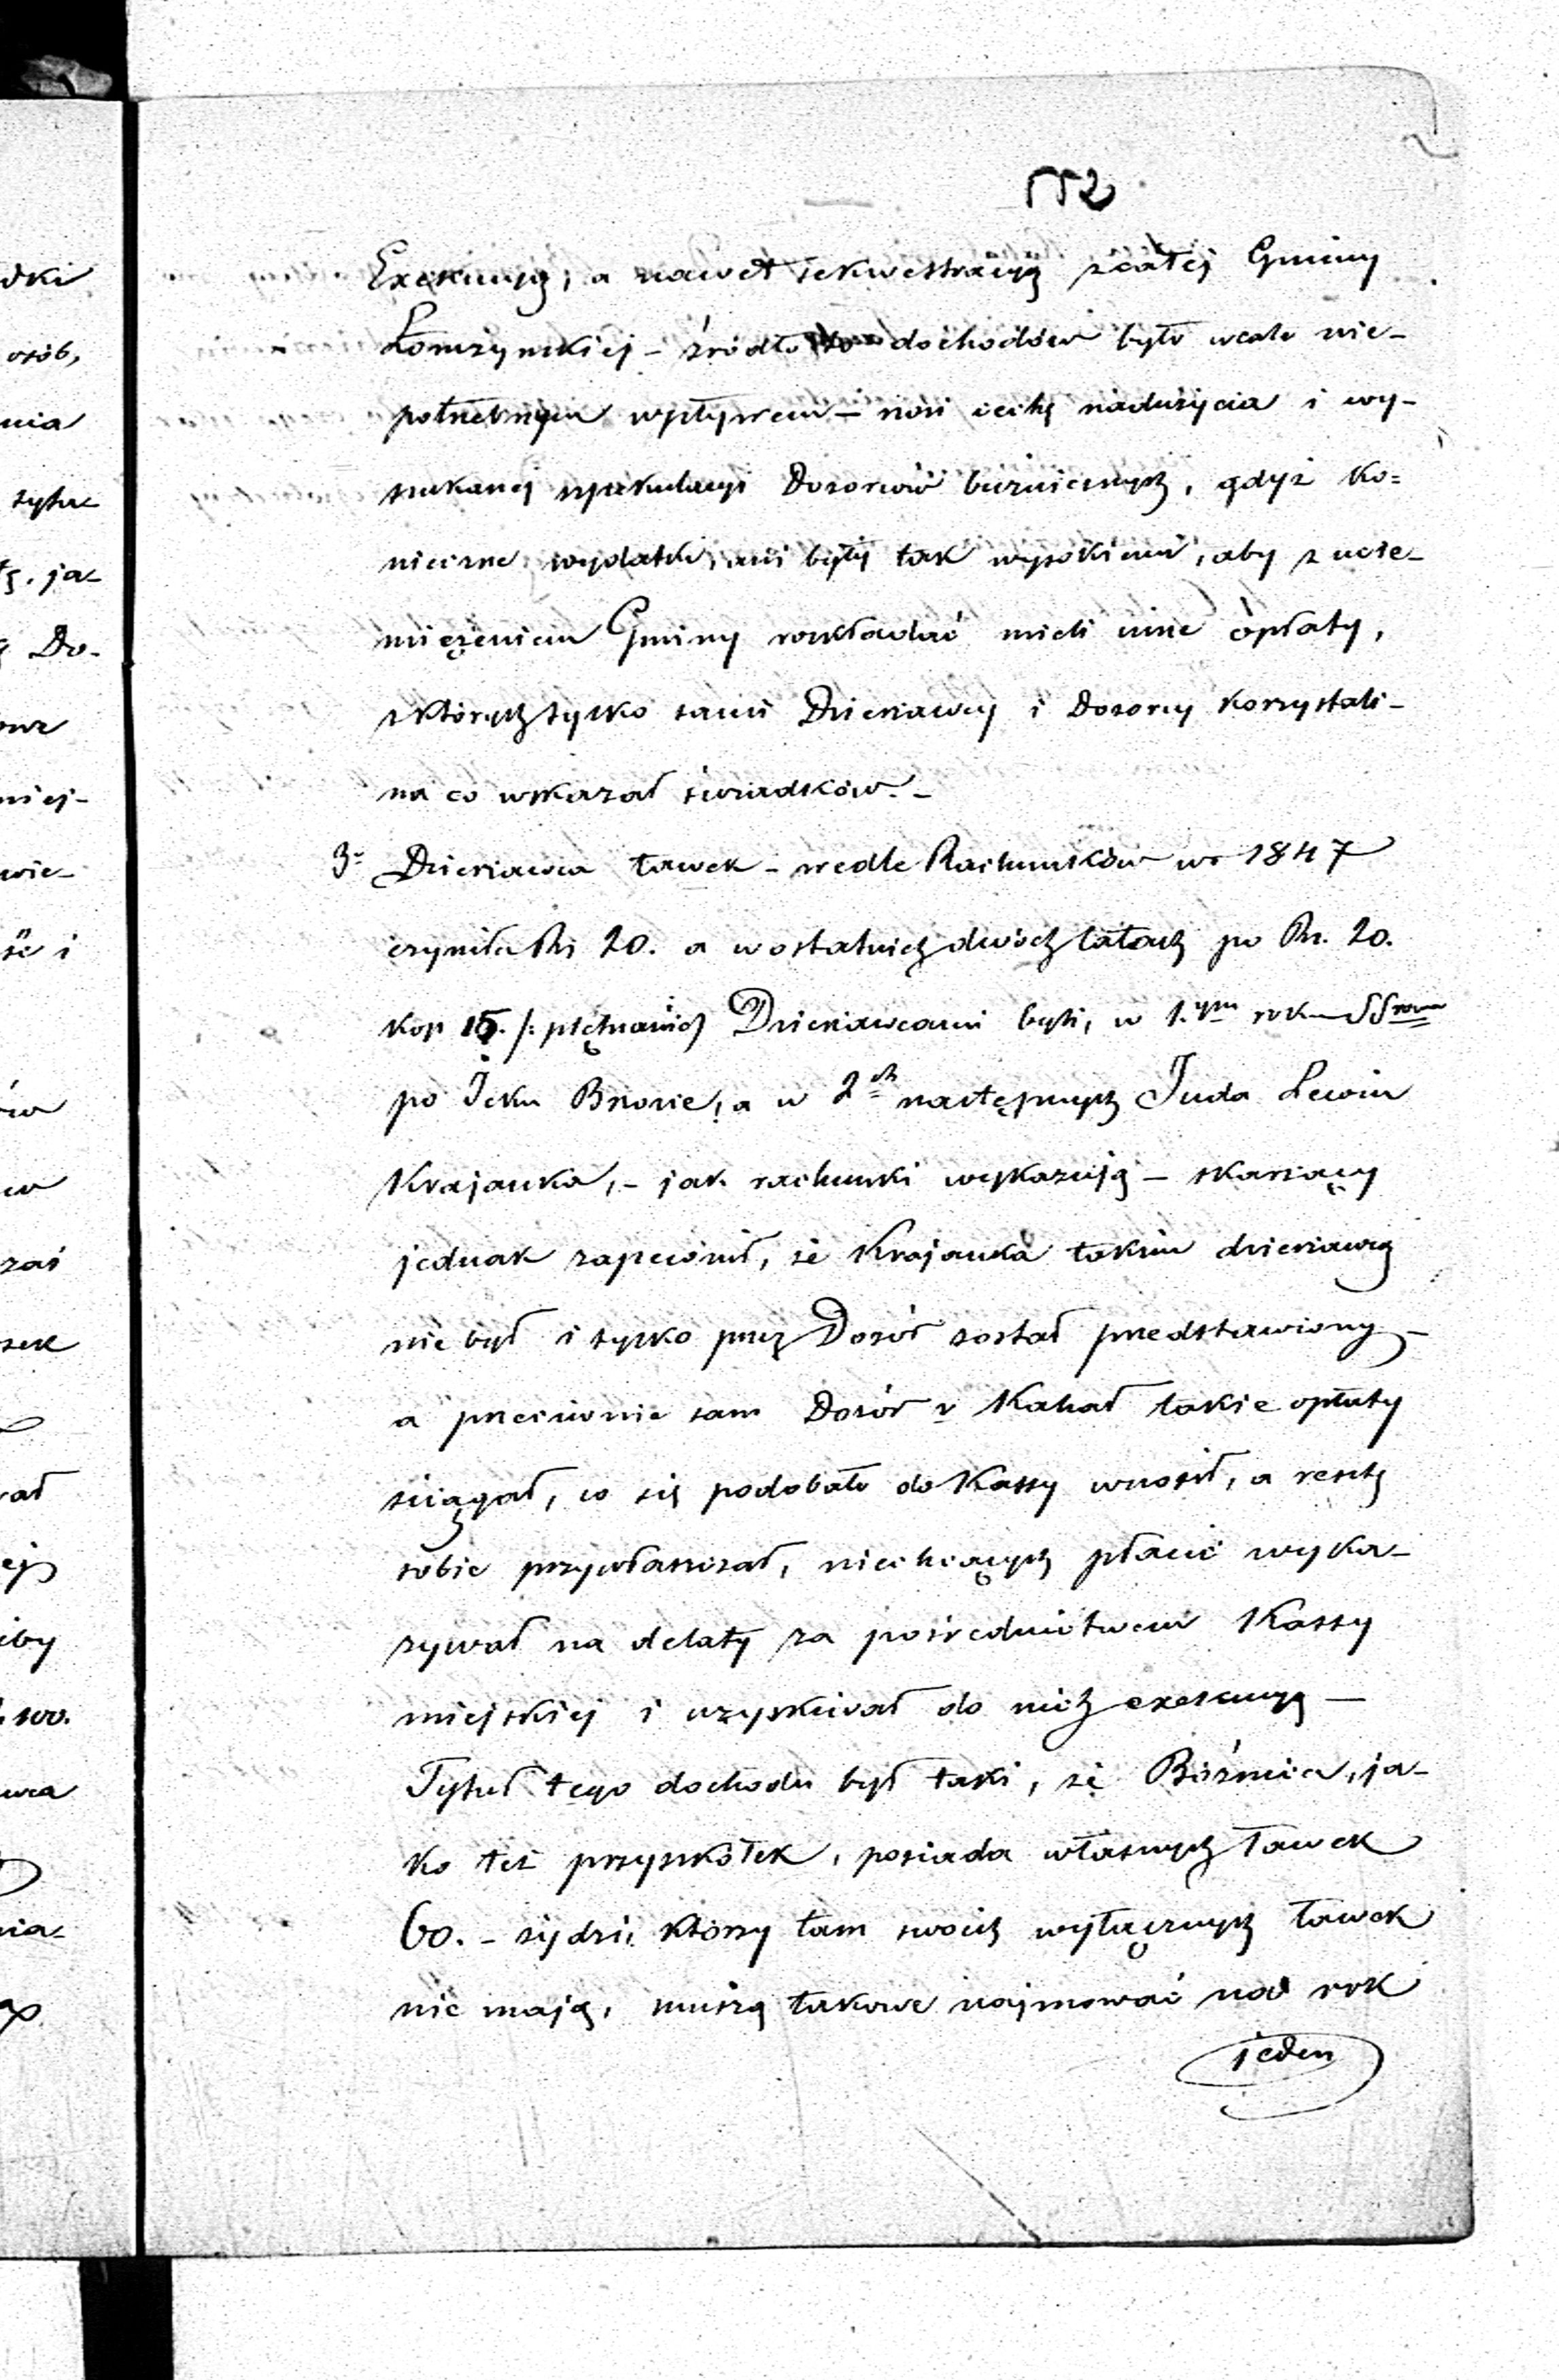 Exekucyą, a nawet sekwestracyą z całej Gminy
Łomżyńskiej – źródło to dochodów było wcale nie-
potrzebnym wpływem – nosi cechę nadużycia i wy-
szukanej spekulacyi Dozorców bużnicznych, gdyż ko=
nieczne wydatki, ani były tak wysokiemi, aby z ucie-
miężeniem Gminy rozkładać mieli inne opłaty,
z których tylko sami Dzierżawcy i Dozorcy korzystali –
na co wskazał świadków. –
3- Dzierżawa ławek – wedle Rachunków w r 1847
czyniła Rs 20. a w ostatnich dwóch latach po Rs. 20.
kop 15. /: piętnaście/ Dzierżawcami byli, w 1.ym roku SSrowie
po Icku Brzozie, a w 2ch następnych Juda Lewin
Krajanka, – jak rachunki wykazują – skarżący
jednak zapewnił, że Krajanka takim dzierżawcą
nie był i tylko przez Dozór został przedstawiony –
a przeciwnie sam Dozór v Kahał takie opłaty
ściągał, co się podobało do Kassy wnosił, a resztę
sobie przywłaszczał, niechcących płacić wyka-
zywał na delaty za pośrednictwem Kassy
miejskiej i uzyskiwał do nich exekucyą —
Tytuł tego dochodu był taki, że Bóżnica, ja-
ko też przyszkółek, posiada własnych ławek
60. – żydzi, którzy tam swoich wyłącznych ławek
nie mają, muszą takowe najmować na rok
jeden
dki
osób,
nia
tytu-
ją. ja-
Do-
niej-
wie-
że i
ów
zaś
ał
ej
iby
wca
nia-